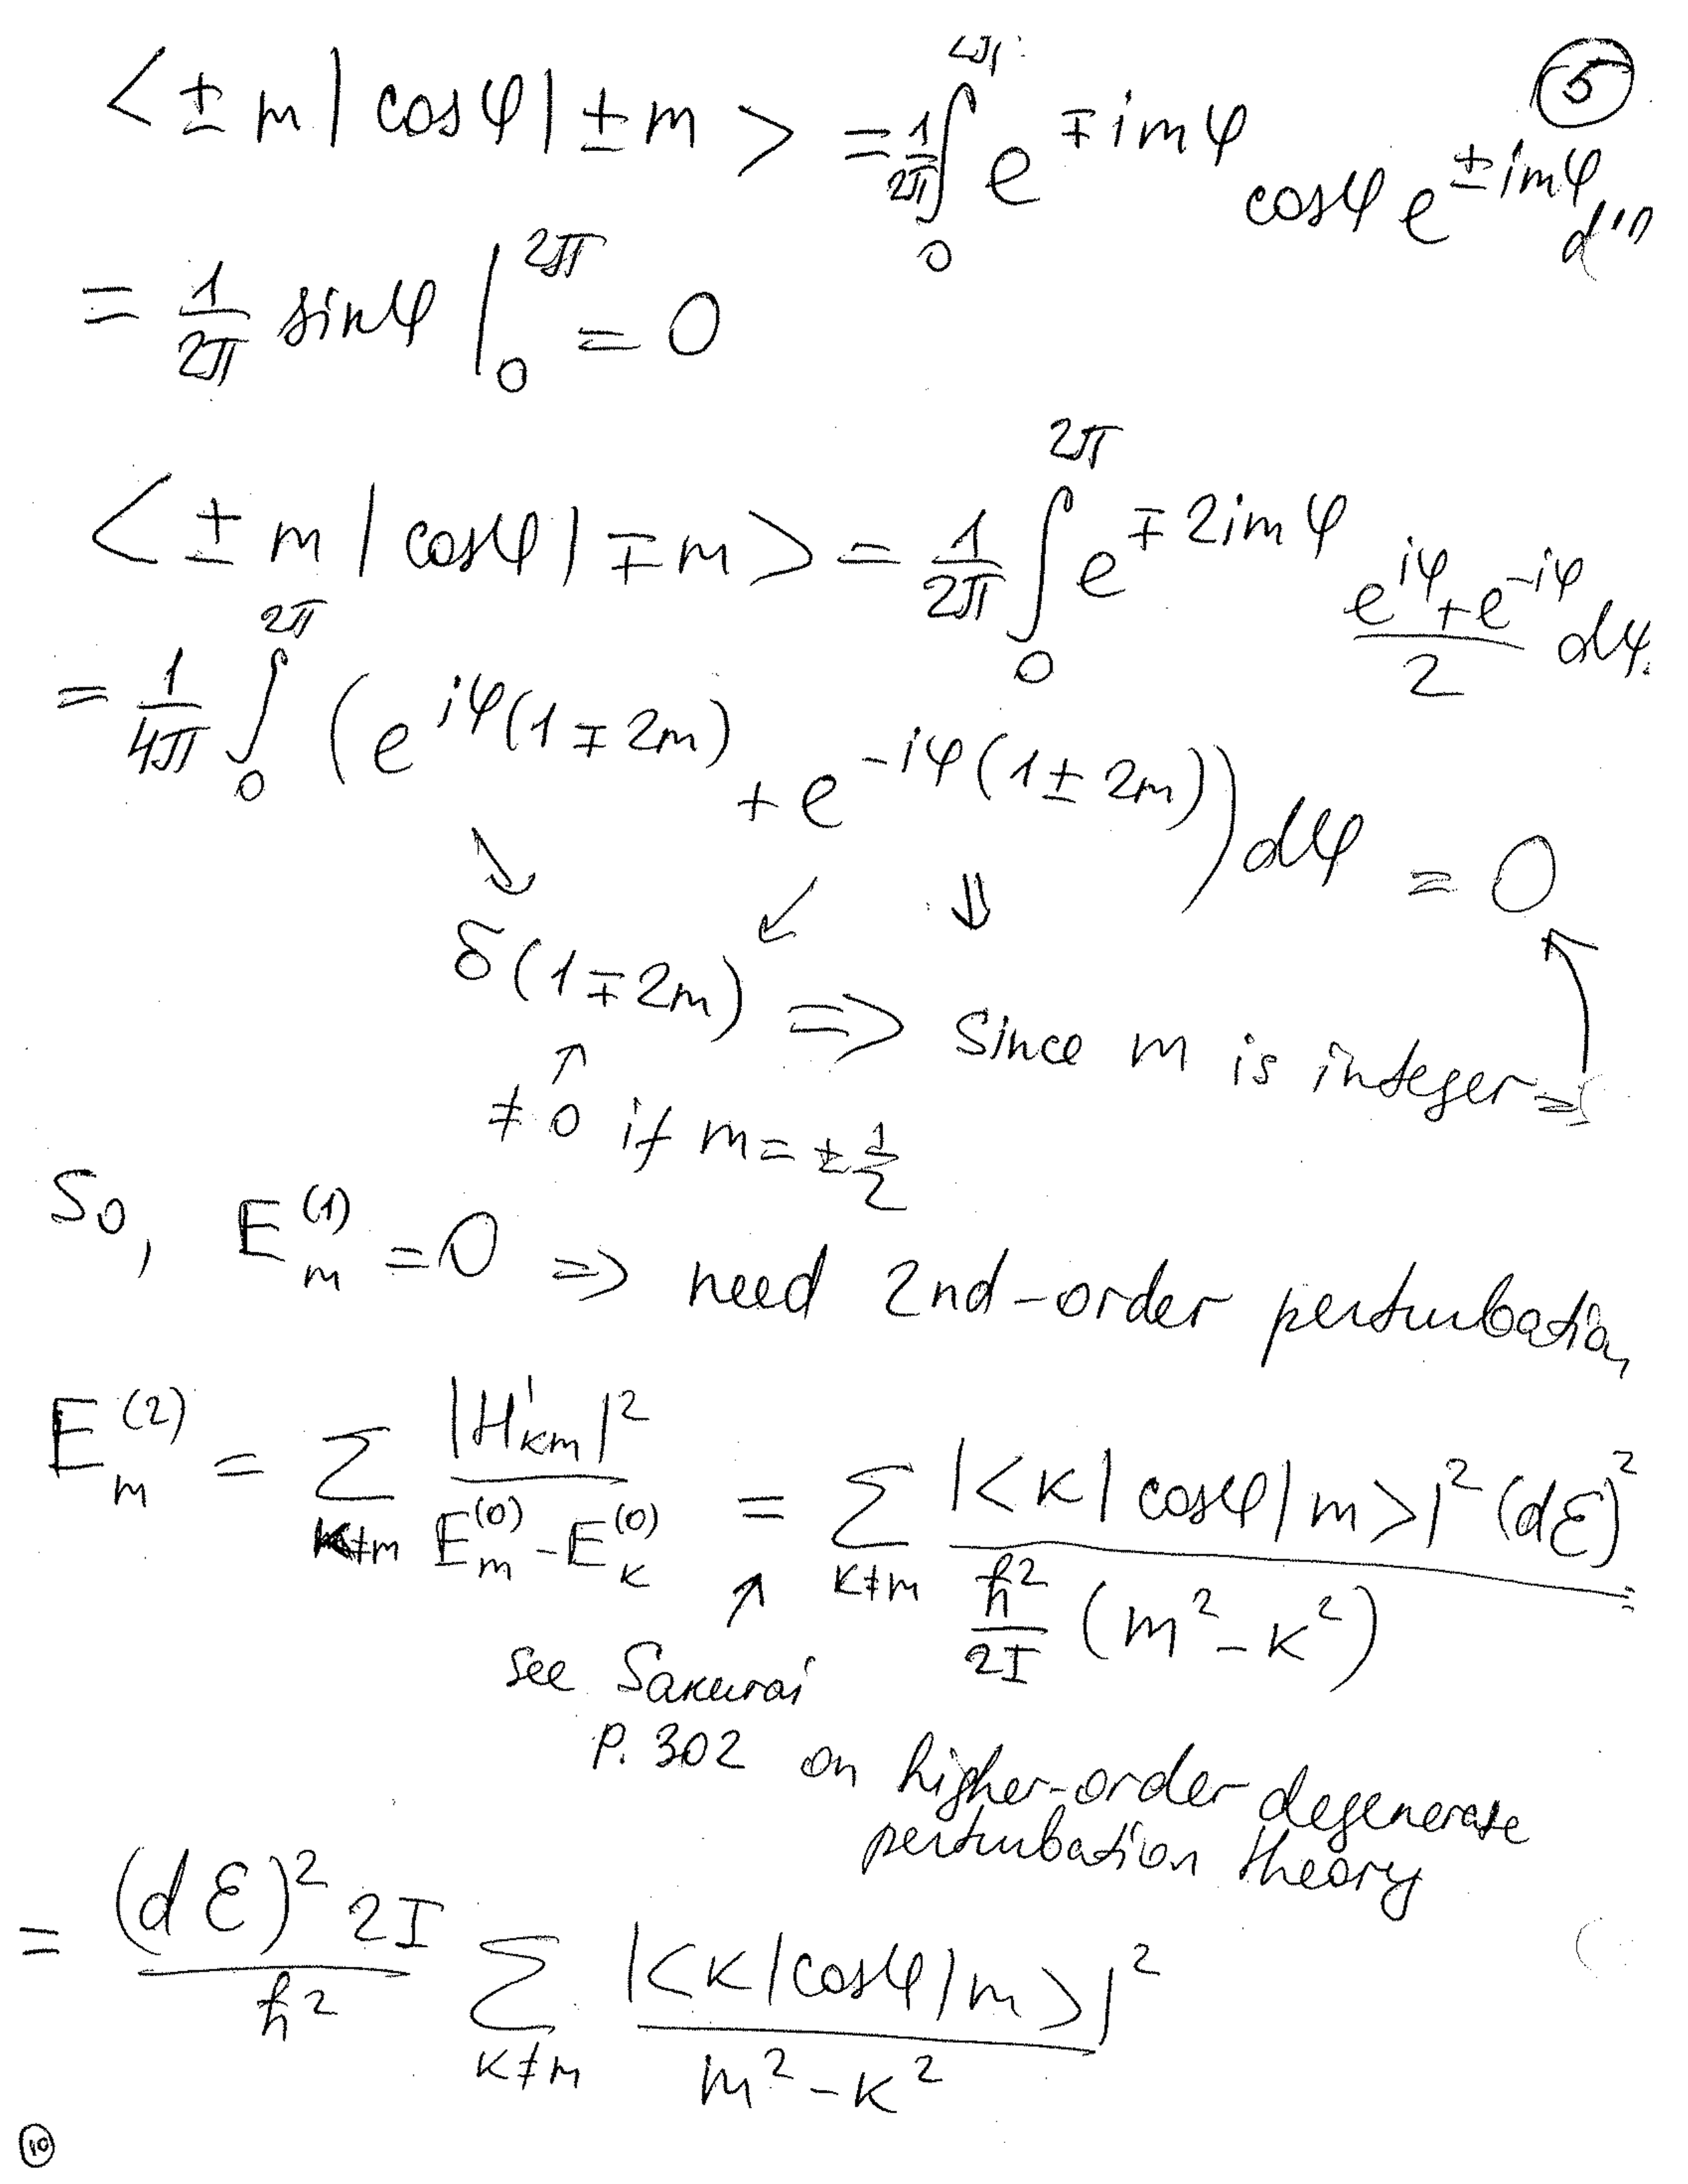 ⑤
<±m|cosφ|±m> = 1/2π ∫₀^2π e^∓imφ cosφ e^±imφ d
= 1/2π sinφ |₀^2π = 0
<±m|cosφ|∓m> = 1/2π ∫₀^2π e^∓2imφ (e^iφ + e^-iφ)/2 dφ
= 1/4π ∫₀^2π (e^iφ(1∓2m) + e^-iφ(1±2m)) dφ = 0
↘ ↙ ⇓
δ(1∓2m) => Since m is integer =
↑
≠ 0 if m = ±1/2
So, E_m^(1) = 0 => need 2nd-order perturbation
E_m^(2) = Σ_{K≠m} |H'_Km|² / (E_m^(0) - E_K^(0)) = Σ_{K≠m} |<K|cosφ|m>|² (dℰ)² / (ħ²/2I (m² - K²)) =
↑
see Sakurai
p. 302 on higher-order degenerate
perturbation theory
= (dℰ)² 2I / ħ² Σ_{K≠m} |<K|cosφ|m>|² / (m² - K²)
⑩